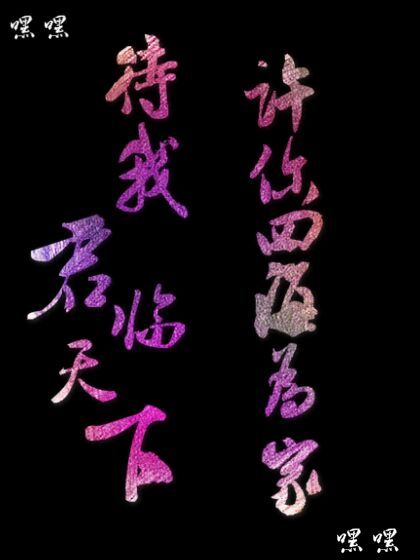 嘿 嘿
待我君临天下
许你四海为家
嘿 嘿